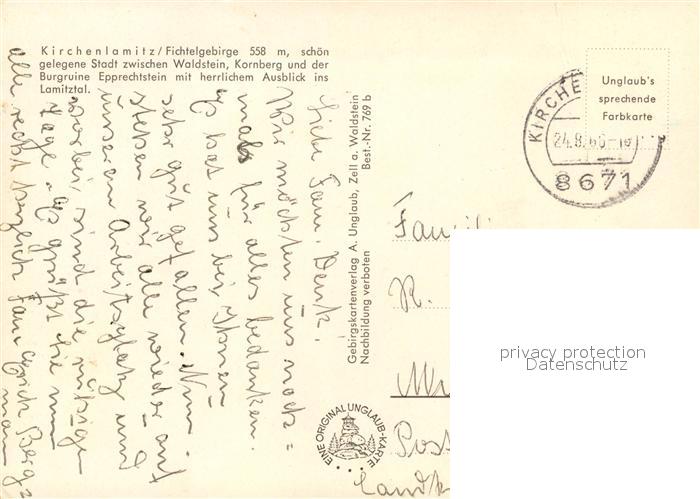 Kirchenlamitz/Fichtelgebirge 558 m, schön
gelegene Stadt zwischen Waldstein, Kornberg und der
Burgruine Epprechtstein mit herrlichem Ausblick ins
Lamitztal.
Liebe Fam. Denk.
Wir möchten uns noch=
mals für alles bedanken.
Es hat uns bei Ihnen
sehr gut gefallen. Nun
stehen wir alle wieder auf
unseren Arbeitsplatz und
vorbei sind die ruhigen
Tage. Es grüßt Sie nun
alle recht herzlich Fam. Berg=
mann
Gebirgskartenverlag A. Unglaub, Zell a. Waldstein
Nachbildung verboten Best.-Nr. 769 b
EINE ORIGINAL UNGLAUB-KARTE
Unglaub's
sprechende
Farbkarte
KIRCHE
8671
R.
Post
Landk
privacy protection
Datenschutz